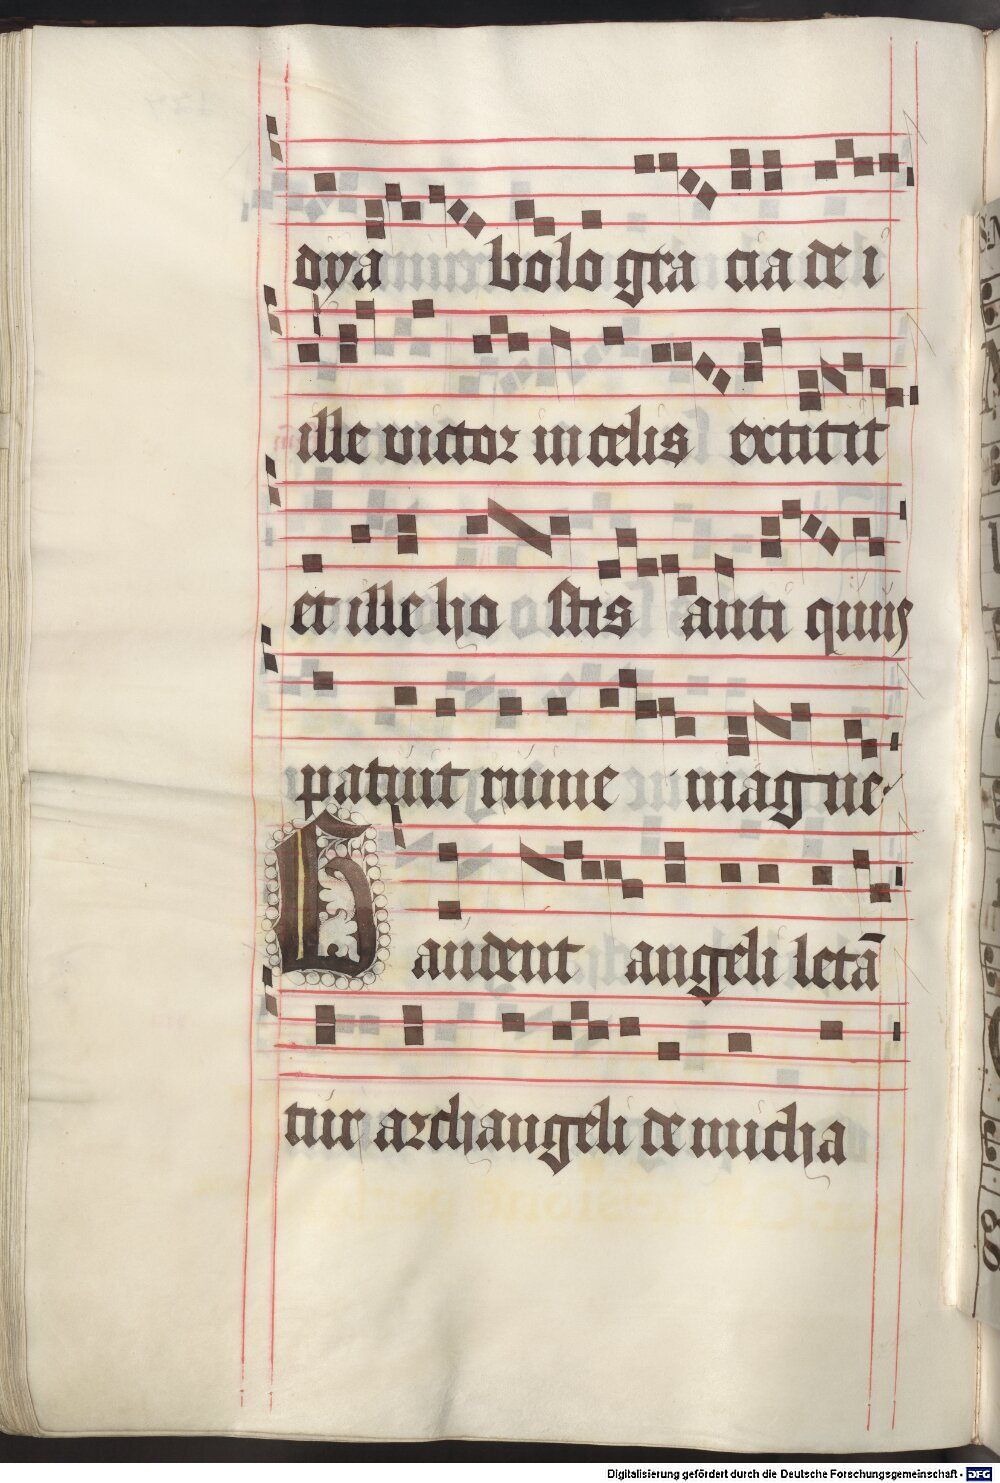 dya bolo gra cia de i
ille victor in celis extitit
et ille ho stis anti quus
patuit ruine magne
Gaudent angeli letā
tur archangeli de micha
Digitalisierung gefördert durch die Deutsche Forschungsgemeinschaft - DFG